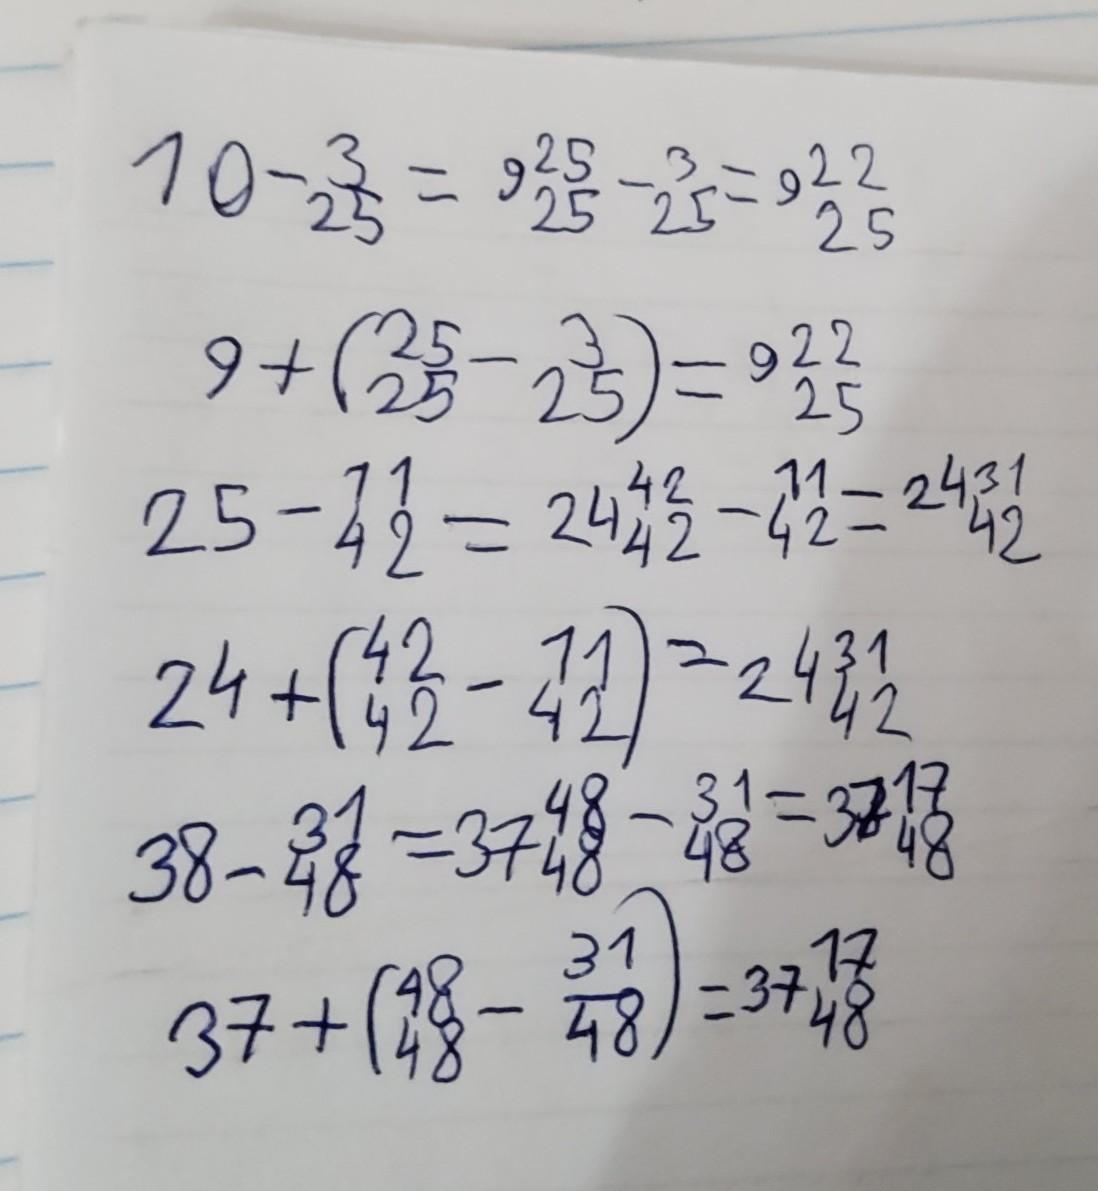 10 - 3/25 = 9 25/25 - 3/25 = 9 22/25
9 + (25/25 - 3/25) = 9 22/25
25 - 11/42 = 24 42/42 - 11/42 = 24 31/42
24 + (42/42 - 11/42) = 24 31/42
38 - 31/48 = 37 48/48 - 31/48 = 37 17/48
37 + (48/48 - 31/48) = 37 17/48